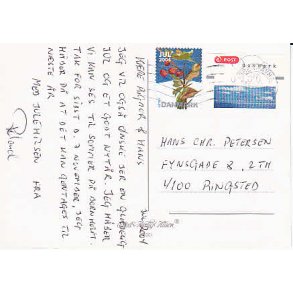 KÆRE AGNER & HANS
JEG VIL OGSÅ ØNSKE JER EN GLÆDELIG
JUL OG ET GODT NYTÅR. JEG HÅBER
VI KAN SES TIL SOMMER PÅ BORNHOLM.
TAK FOR SIDST D. 7 NOVEMBER, JEG
HÅBER DA AT DET KAN GENTAGES TIL
NÆSTE ÅR
MED JULEHILSEN FRA
JUL
2004
DANMARK
POST
danmark
HANS CHR. PETERSEN
FYNSGADE 8, 2TH
4100 RINGSTED